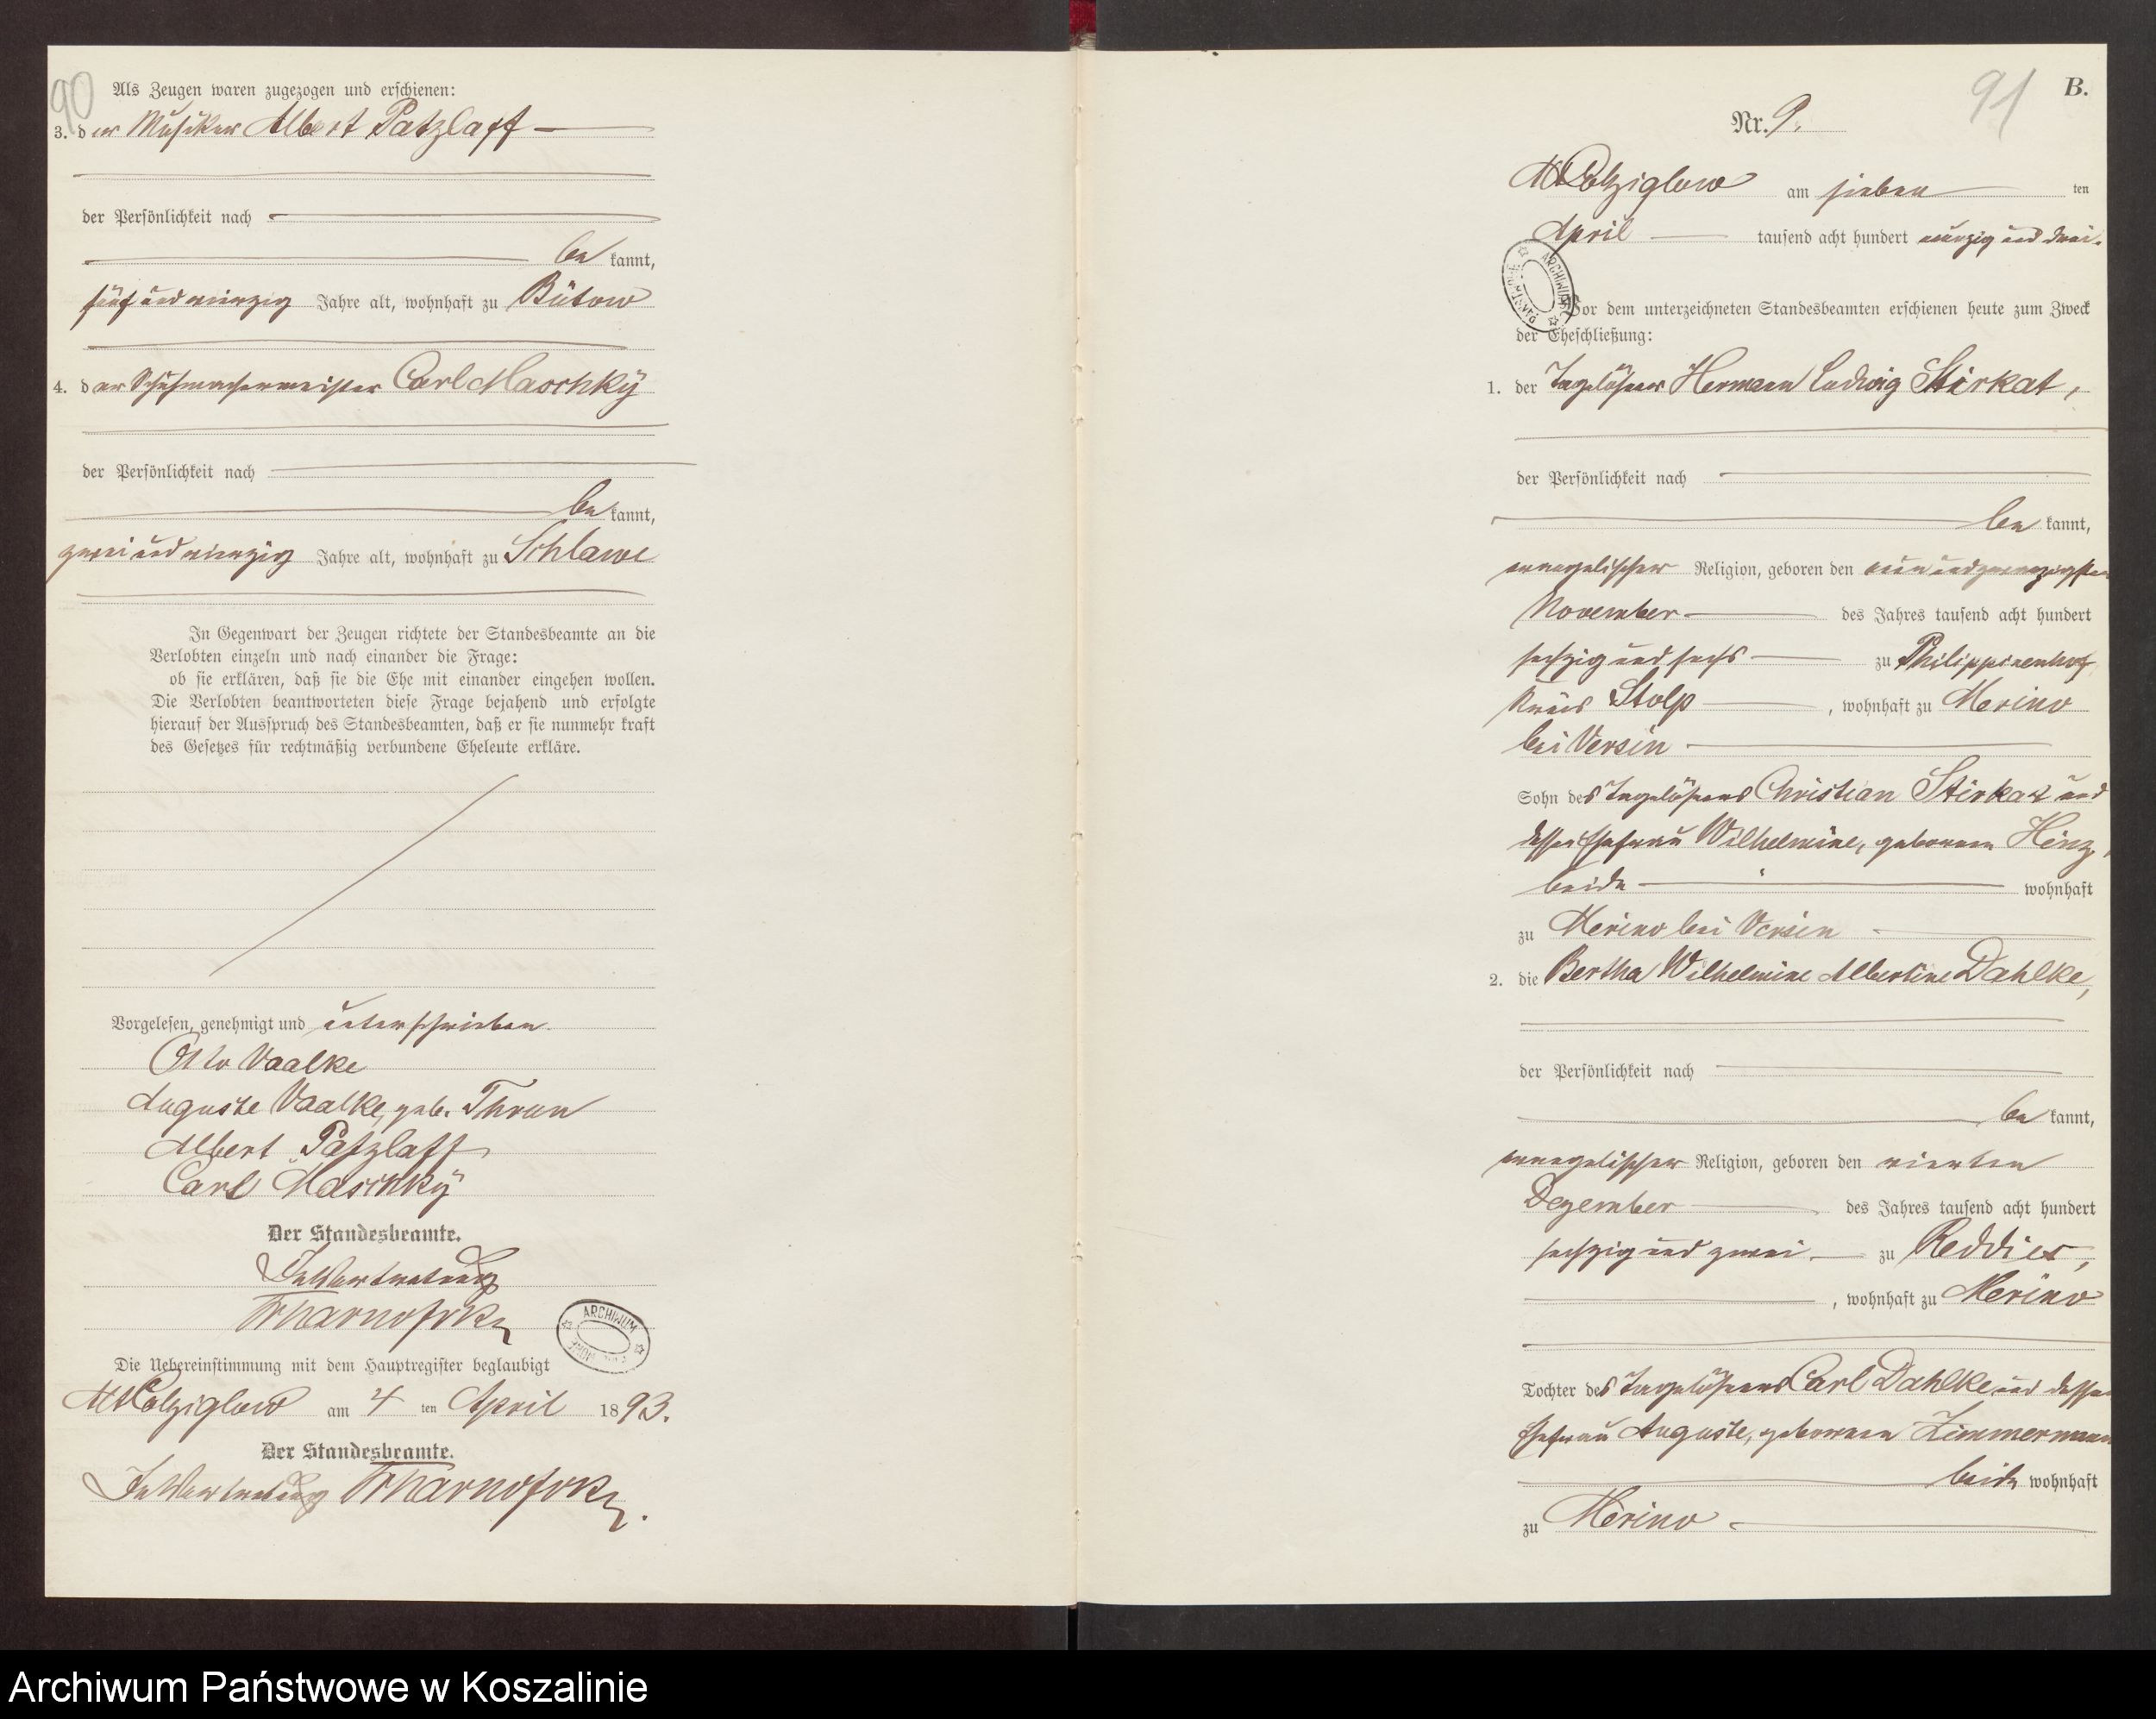 90
Als Zeugen waren zugezogen und erschienen:
3. der Musiker Albert Patzlaff
der Persönlichkeit nach
be kannt,
fünf und vierzig Jahre alt, wohnhaft zu Bütow
4. der Schuhmachermeister Carl Maschky
der Persönlichkeit nach
be kannt,
zwei und vierzig Jahre alt, wohnhaft zu Schlawe
In Gegenwart der Zeugen richtete der Standesbeamte an die
Verlobten einzeln und nach einander die Frage:
ob sie erklären, daß sie die Ehe mit einander eingehen wollen.
Die Verlobten beantworteten diese Frage bejahend und erfolgte
hierauf der Ausspruch des Standesbeamten, daß er sie nunmehr kraft
des Gesetzes für rechtmäßig verbundene Eheleute erkläre.
Vorgelesen, genehmigt und unterschrieben
Otto Vaalke
Auguste Vaalke, geb. Thrun
Albert Patzlaff
Carl Maschky
Der Standesbeamte.
In Vertretung
ARCHIWUM
Die Uebereinstimmung mit dem Hauptregister beglaubigt
Alt Colziglow am 4 ten April 1893.
Der Standesbeamte.
In Vertretung
91
B.
Nr. 9.
Alt Colziglow am sieben ten
April tausend acht hundert neunzig und drei.
ARCHIWUM PAŃSTWOWE
Vor dem unterzeichneten Standesbeamten erschienen heute zum Zweck
der Eheschließung:
1. der Tagelöhner Hermann Ludwig Stirkat,
der Persönlichkeit nach
be kannt,
evangelischer Religion, geboren den neun und zwanzigsten
November des Jahres tausend acht hundert
sechzig und sechs zu Philippinenhof
Kreis Stolp, wohnhaft zu Merino
bei Versin
Sohn des Tagelöhners Christian Stirkat und
dessen Ehefrau Wilhelmine, geborenen Hinz,
beide wohnhaft
zu Merino bei Versin
2. die Bertha Wilhelmine Albertine Dahlke,
der Persönlichkeit nach
be kannt,
evangelischer Religion, geboren den vierten
Dezember des Jahres tausend acht hundert
sechzig und zwei zu Reddies,
, wohnhaft zu Merino
Tochter des Tagelöhners Carl Dahlke und dessen
Ehefrau Auguste, geborenen Zimmermann
beide wohnhaft
zu Merino
Archiwum Państwowe w Koszalinie